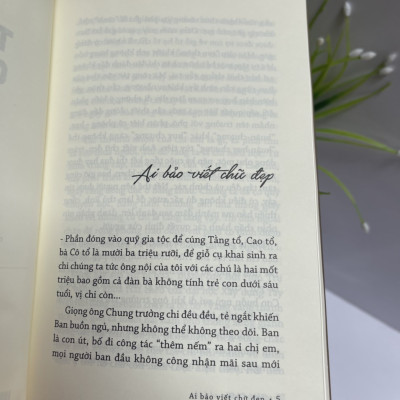 Ai bảo viết chữ đẹp
- Phần đóng vào quỹ gia tộc để cúng Tằng tổ, Cao tổ,
bà Cô tổ là mười ba triệu rưỡi, để giỗ cụ khai sinh ra
chi chúng ta tức ông nội của tôi với các chú là hai mốt
triệu bao gồm cả đàn bà không tính trẻ con dưới sáu
tuổi, vị chi còn...
Giọng ông Chung trưởng chi đều đều, tẻ ngắt khiến
Ban buồn ngủ, nhưng không thể không theo dõi. Ban
là con út, bố đi công tác “thêm nếm” ra hai chị em,
mọi người ban đầu không công nhận mãi sau mới
Ai bảo viết chữ đẹp • 5